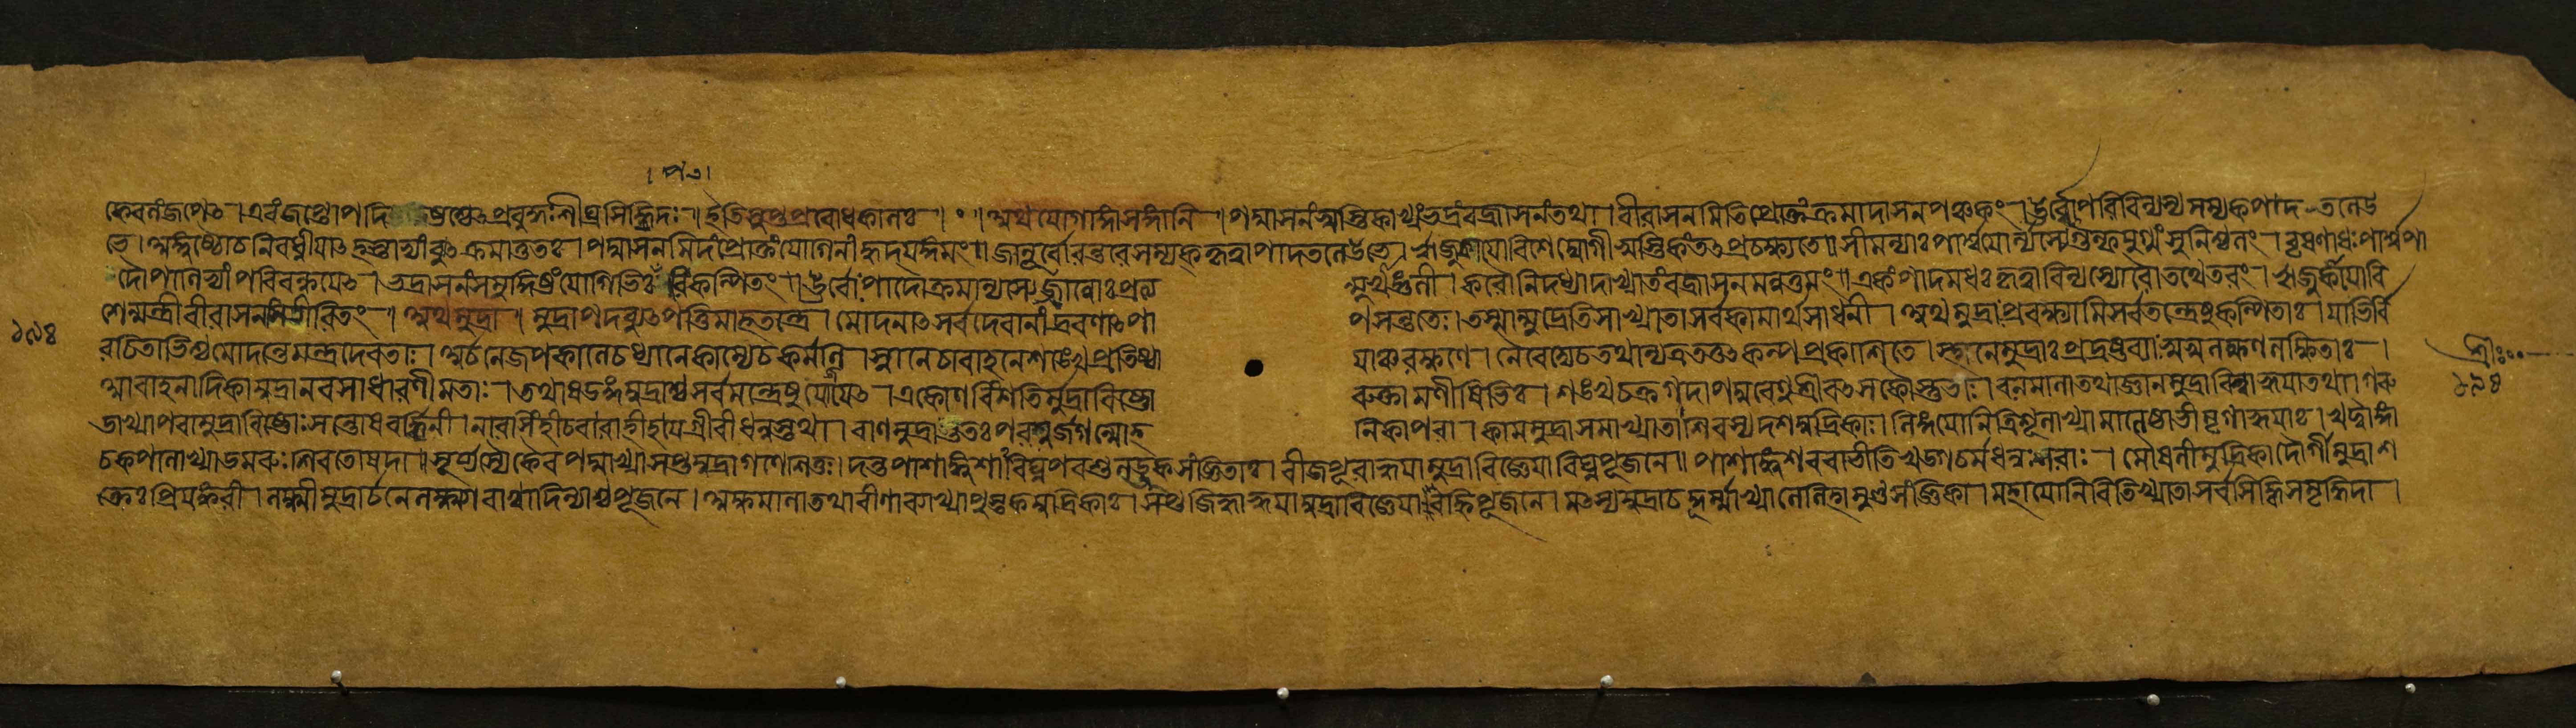 । পত।
কৈবতং জপেৎ । এবং জপ্তোপদি প্রবুদ্ধঃ শীঘ্রসিদ্ধিদঃ । ইতি সুপ্তপ্রবোধকালঃ । ॰ । অথ যোগাঙ্গাসনানি । পদ্মাসনং স্বস্তিকাখ্যং ভদ্রং বজ্রাসনং তথা । বীরাসনমিতি প্রোক্তং ক্রমাদাসনপঞ্চকং । ঊর্ব্বোপরি বিন্যস্য সম্যক্ পাদতলে উ
ভে । অঙ্গুষ্ঠৌ চ নিবধ্নীয়াৎ হস্তাভ্যাং ব্যুৎক্রমাত্ততঃ । পদ্মাসনমিদং প্রোক্তং যোগিনাং হৃদয়ঙ্গমং ॥ জানূর্বোরন্তরে সম্যক্ কৃত্বা পাদতলে উভে । ঋজুকায়ো বিশেদ্যোগী স্বস্তিকং তৎ প্রচক্ষ্যতে ॥ সীমন্যাঃ পার্শ্বয়োর্ন্যস্যেদ্গুল্ফযুগ্মং সুনিশ্চলং । বৃষণাধঃ পার্শ্বপা
দৌ পাণিভ্যাং পরিবন্ধয়েৎ । ভদ্রাসনং সমুদ্দিষ্টং যোগিভিঃ পরিকল্পিতং ॥ ঊর্বোঃ পাদৌ ক্রমান্ন্যস্যেজ্জান্বোঃ প্রত্য ঙ্মুখাঙ্গুলী । করৌ নিদধ্যাদাখ্যাতং বজ্রাসনমনুত্তমং ॥ একং পাদমধঃ কৃত্বা বিন্যস্যোরৌ তথেতরং । ঋজুকায়ো বি
শেন্মন্ত্রী বীরাসনমিতীরিতং । অথ মুদ্রা । মুদ্রাপদব্যুৎপত্তিমাহ তন্ত্রে । মোদনাৎ সর্বদেবানাং দ্রাবণাৎ পা পসন্ততেঃ । তস্মান্মুদ্রেতি সাখ্যাতা সর্বকামার্থসাধনী । অথ মুদ্রাং প্রবক্ষ্যামি সর্বতন্ত্রেষু কল্পিতাঃ । যাভির্বি
রচিতাভিশ্চ মোদন্তে মন্ত্রদেবতাঃ । অর্চনে জপকালে চ ধ্যানে কাম্যে চ কর্মণি । স্নানে চাবাহনে শঙ্খে প্রতিষ্ঠা য়াঞ্চ রক্ষণে । নৈবেদ্যে চ তথান্যত্র তত্তৎকল্পপ্রকাশিতে । স্থানে মুদ্রাঃ প্রদ্রষ্টব্যাঃ স্বস্বলক্ষণলক্ষিতাঃ ।
আবাহনাদিকা মুদ্রা নব সাধারণী মতাঃ । তথা ষডঙ্গমুদ্রাশ্চ সর্বমন্ত্রেষু যোজয়েৎ । একোনবিংশতির্মুদ্রা বিষ্ণো রুক্তা মনীষিভিঃ । শঙ্খচক্রগদাপদ্মবেণুশ্রীবৎসকৌস্তুভাঃ । বনমালা তথা জ্ঞানমুদ্রা বিল্বাহ্বয়া তথা । গরু
ডাখ্যা পরা মুদ্রা বিষ্ণোঃ সন্তোষবর্দ্ধিনী । নারসিংহী চ বারাহী হায়গ্রীবী ধনুস্তথা । বাণমুদ্রা ততঃ পরশুর্জগন্মোহ নিকাপরা । কামমুদ্রা সমাখ্যাতা শিবস্য দশ মুদ্রিকাঃ । লিঙ্গযোনিত্রিশূলাখ্যা মালেষ্টাভীমৃগাহ্বয়াঃ । খট্বাঙ্গা
চ কপালাখ্যা ডমরুঃ শিবতোষদা । সূর্য্যস্যৈকৈব পদ্মাখ্যা সপ্ত মুদ্রা গণেশিতুঃ । দন্তপাশাঙ্কুশা বিঘ্নপরশুলড্ডুকসংজ্ঞিতাঃ । বীজপূরাহ্বয়া মুদ্রা বিজ্ঞেয়া বিঘ্নপূজনে ॥ পাশাঙ্কুশবরাভীতিখড়্গচর্মধনুঃশরাঃ । মৌষলী মুদ্রিকা দৌর্গী মুদ্রা শ
ক্তেঃ প্রিয়ঙ্করী । লক্ষ্মীমুদ্রার্চনে লক্ষ্ম্যা বাগ্বাদিন্যাশ্চ পূজনে । অক্ষমালা তথা বীণা ব্যাখ্যা পুস্তকমুদ্রিকাঃ । সপ্তজিহ্বাহ্বয়া মুদ্রা বিজ্ঞেয়া বহ্নিপূজনে । মৎস্যমুদ্রা চ কূর্ম্মাখ্যা লেলিহা মুণ্ডসংজ্ঞিকা । মহাযোনিরিতি খ্যাতা সর্বসিদ্ধিসমৃদ্ধিদা ।
১৯৪
শ্রীঃ
১৯৪